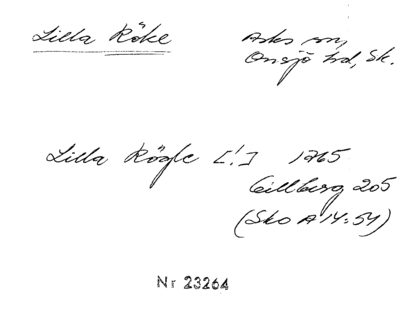 Lilla Röke
Asks sn,
Onsjö hd, Sk.
Lilla Rögle [!] 1765
Gillberg 205
(Sko A 14:54)
Nr 23264